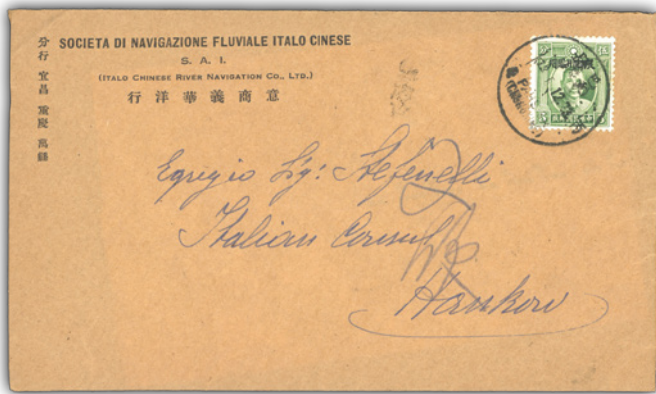 SOCIETA DI NAVIGAZIONE FLUVIALE ITALO CINESE
S. A. I.
(ITALO CHINESE RIVER NAVIGATION CO., LTD.)
行洋華義商意
分行 宜昌 重慶 萬縣
Egregio Sig: Stefenelli
Italian Consul
Hankow